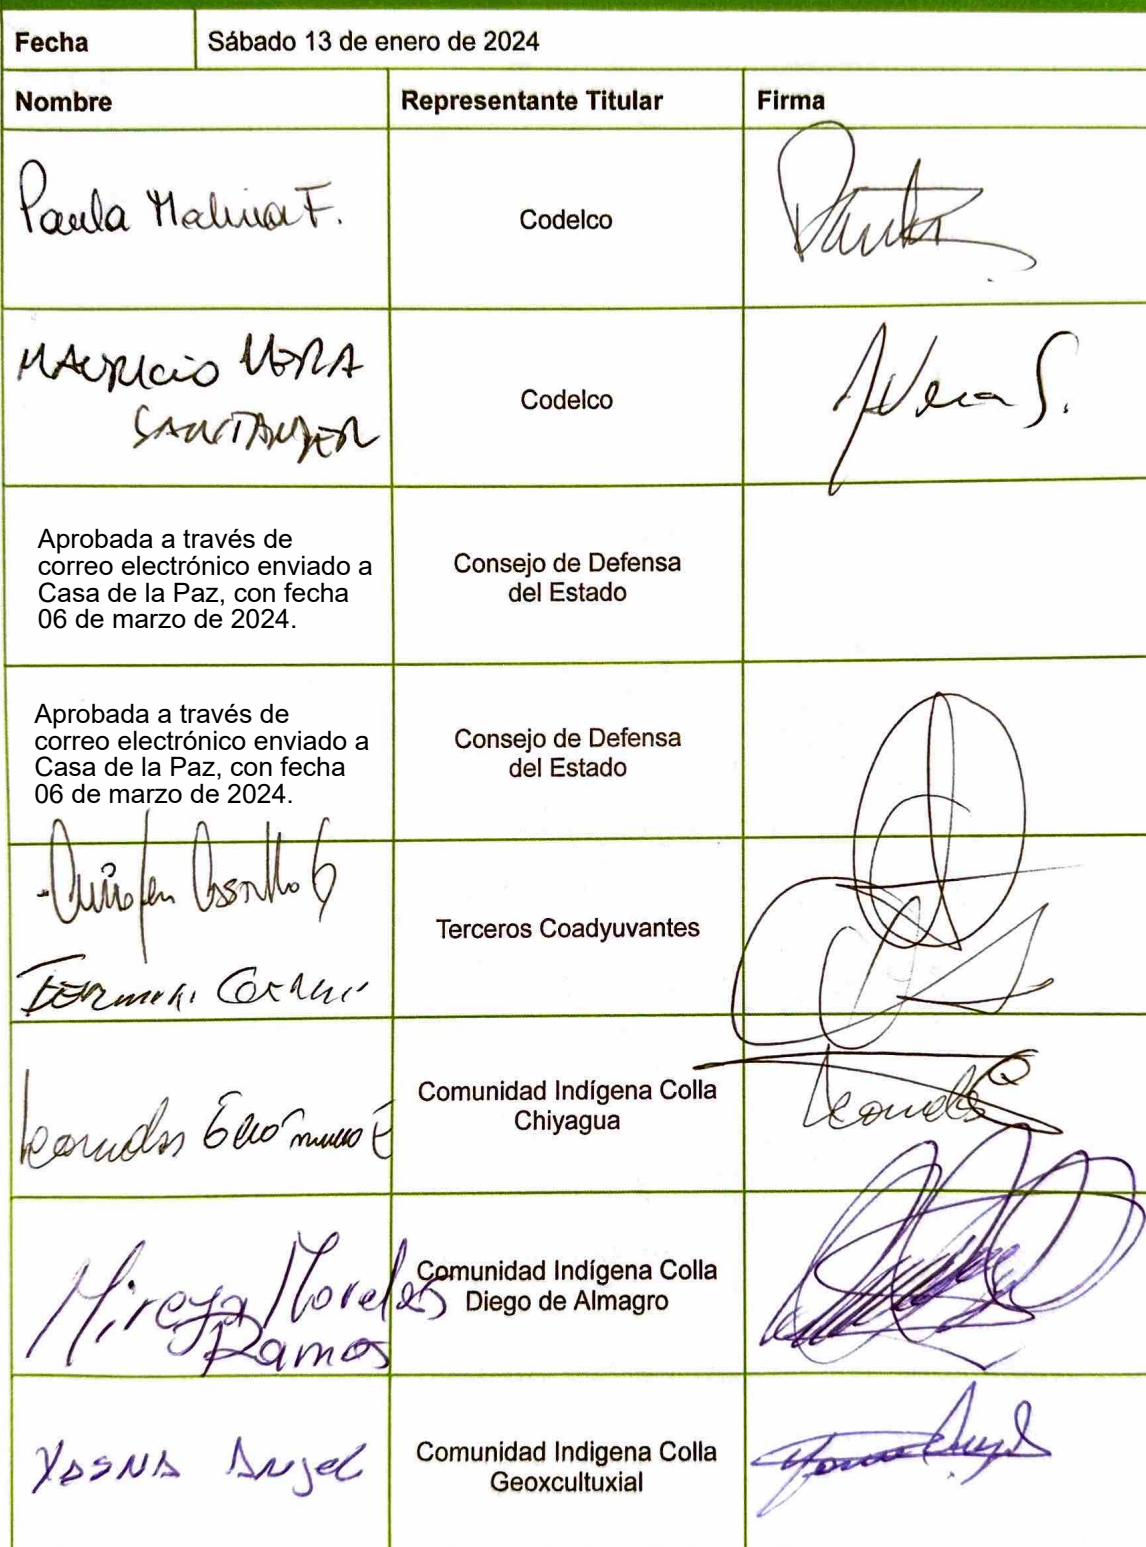 Fecha Sábado 13 de enero de 2024
Nombre Representante Titular Firma
Paula Molina F.
Codelco
MAURICIO VERA
SANTANDER
Codelco
Vera S.
Aprobada a través de
correo electrónico enviado a
Casa de la Paz, con fecha
06 de marzo de 2024.
Consejo de Defensa
del Estado
Aprobada a través de
correo electrónico enviado a
Casa de la Paz, con fecha
06 de marzo de 2024.
Consejo de Defensa
del Estado
Terceros Coadyuvantes
Comunidad Indígena Colla
Chiyagua
Mireya Morales
Ramos
Comunidad Indígena Colla
Diego de Almagro
YASNA Angel
Comunidad Indigena Colla
Geoxcultuxial